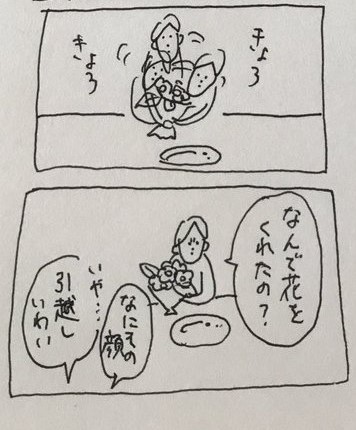 きょろ
きょろ
なんで花を
くれたの?
なにその
顔
いや…
引越し
いわい